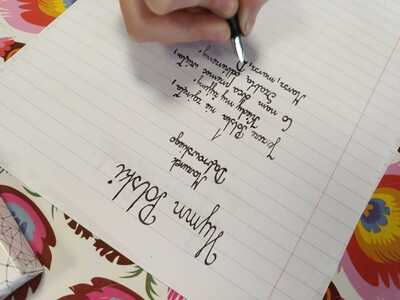 Hymn Polski
Mazurek
Dąbrowskiego
Jeszcze Polska nie zginęła,
Kiedy my żyjemy.
Co nam obca przemoc wzięła,
Szablą odbierzemy.
Marsz, marsz,